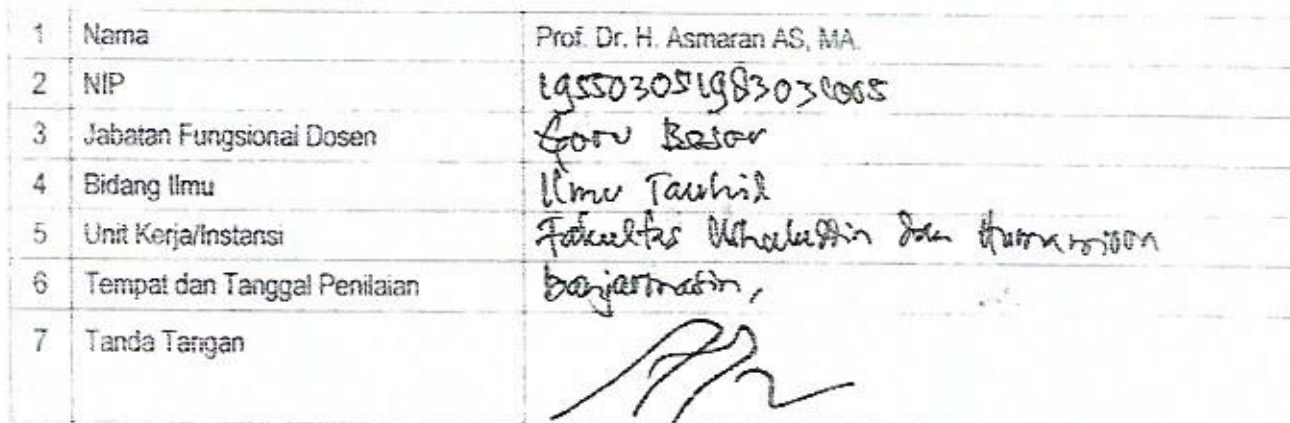 1 Nama Prof. Dr. H. Asmaran AS, MA.
2 NIP 195503051983031005
3 Jabatan Fungsional Dosen Guru Besar
4 Bidang Ilmu Ilmu Tauhid
5 Unit Kerja/Instansi Fakultas Ushuluddin dan Humaniora
6 Tempat dan Tanggal Penilaian Banjarmasin,
7 Tanda Tangan